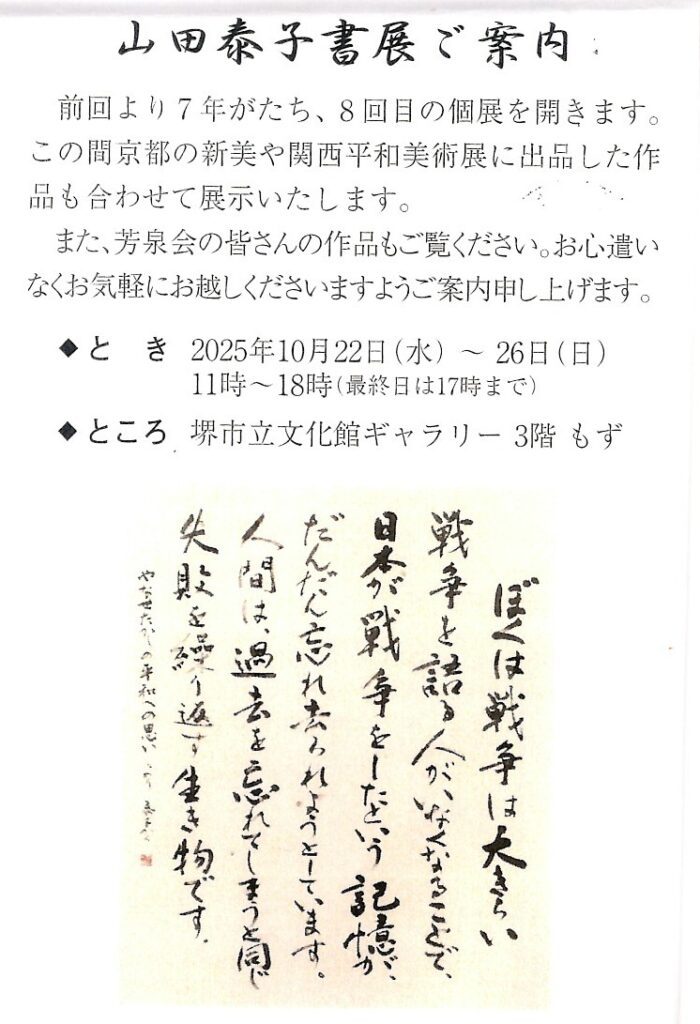 山田泰子書展ご案内
前回より７年がたち、８回目の個展を開きます。
この間京都の新美や関西平和美術展に出品した作
品も合わせて展示いたします。
また、芳泉会の皆さんの作品もご覧ください。お心遣い
なくお気軽にお越しくださいますようご案内申し上げます。
◆とき 2025年10月22日（水）～26日（日）
11時～18時（最終日は17時まで）
◆ところ 堺市立文化館ギャラリー 3階 もず
ぼくは戦争は大きらい
戦争を語る人が、いなくなることで、
日本が戦争をしたという記憶が、
だんだん忘れ去られようとしています。
人間は、過去を忘れてしまうと同じ
失敗を繰り返す生き物です。
やなせたかしの平和への思いより